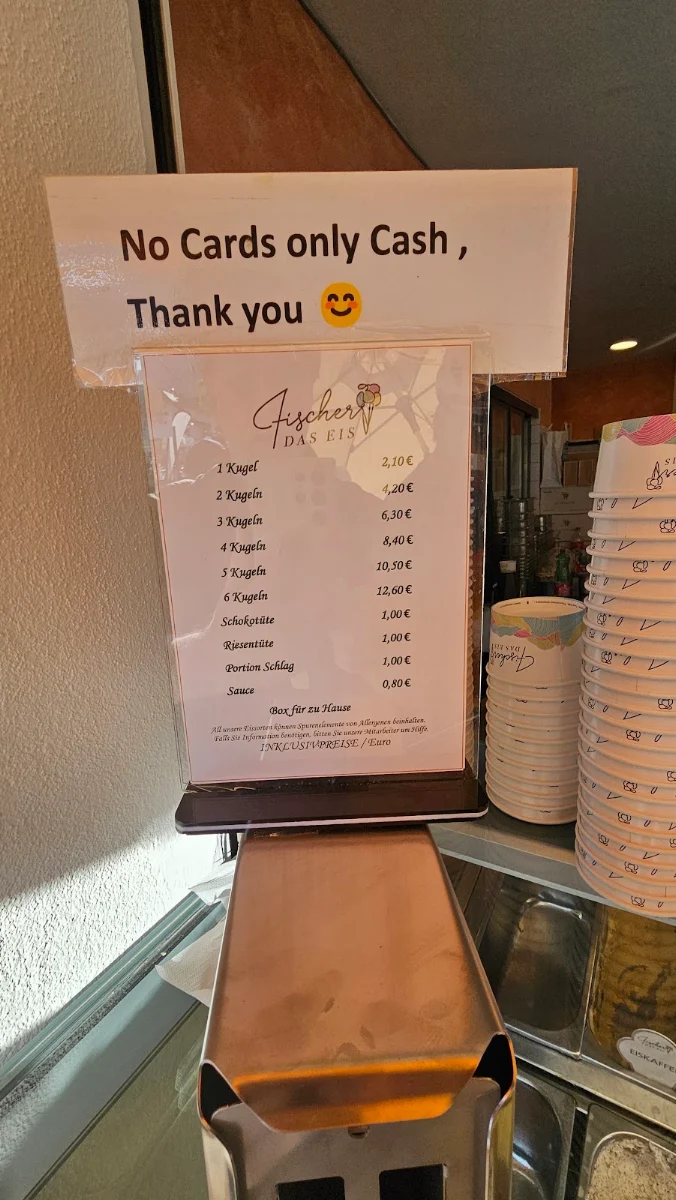 No Cards only Cash ,
Thank you 😊
Fischer
DAS EIS
1 Kugel 2,10 €
2 Kugeln 4,20 €
3 Kugeln 6,30 €
4 Kugeln 8,40 €
5 Kugeln 10,50 €
6 Kugeln 12,60 €
Schokotüte 1,00 €
Riesentüte 1,00 €
Portion Schlag 1,00 €
Sauce 0,80 €
Box für zu Hause
All unsere Eissorten können Spurenelemente von Allergenen beinhalten.
Falls Sie Information benötigen, bitten Sie unsere Mitarbeiter um Hilfe.
INKLUSIVPREISE / Euro
Fischer
DAS EIS
Fischer
EISKAFFE